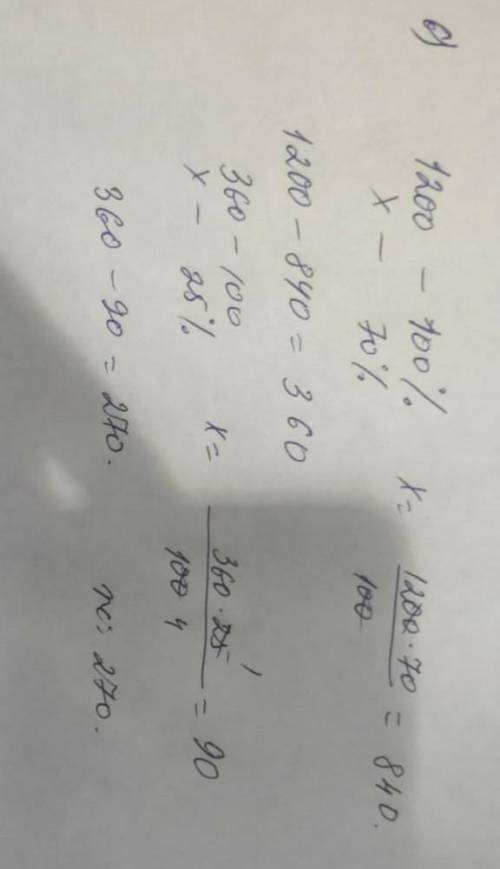 c)
1200 – 100%
x – 70% x = 1200 · 70 / 100 = 840.
1200 – 840 = 360
360 – 100
x – 25% x = 360 · 25 1 / 100 4 = 90
360 – 90 = 270. : 270.